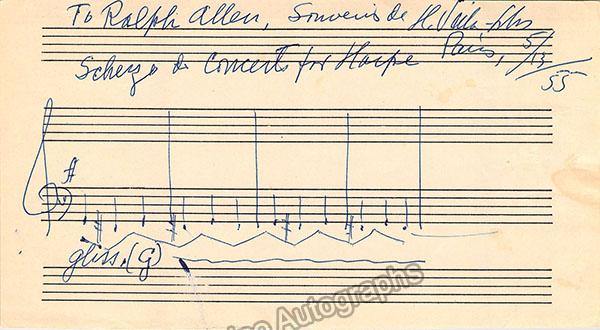 To Ralph Allen, Souvenir de H. Villa-Lobos
Scherzo do Concerto for Harpe Paris, 5/13/55
ff
gliss. (G)
Autographs